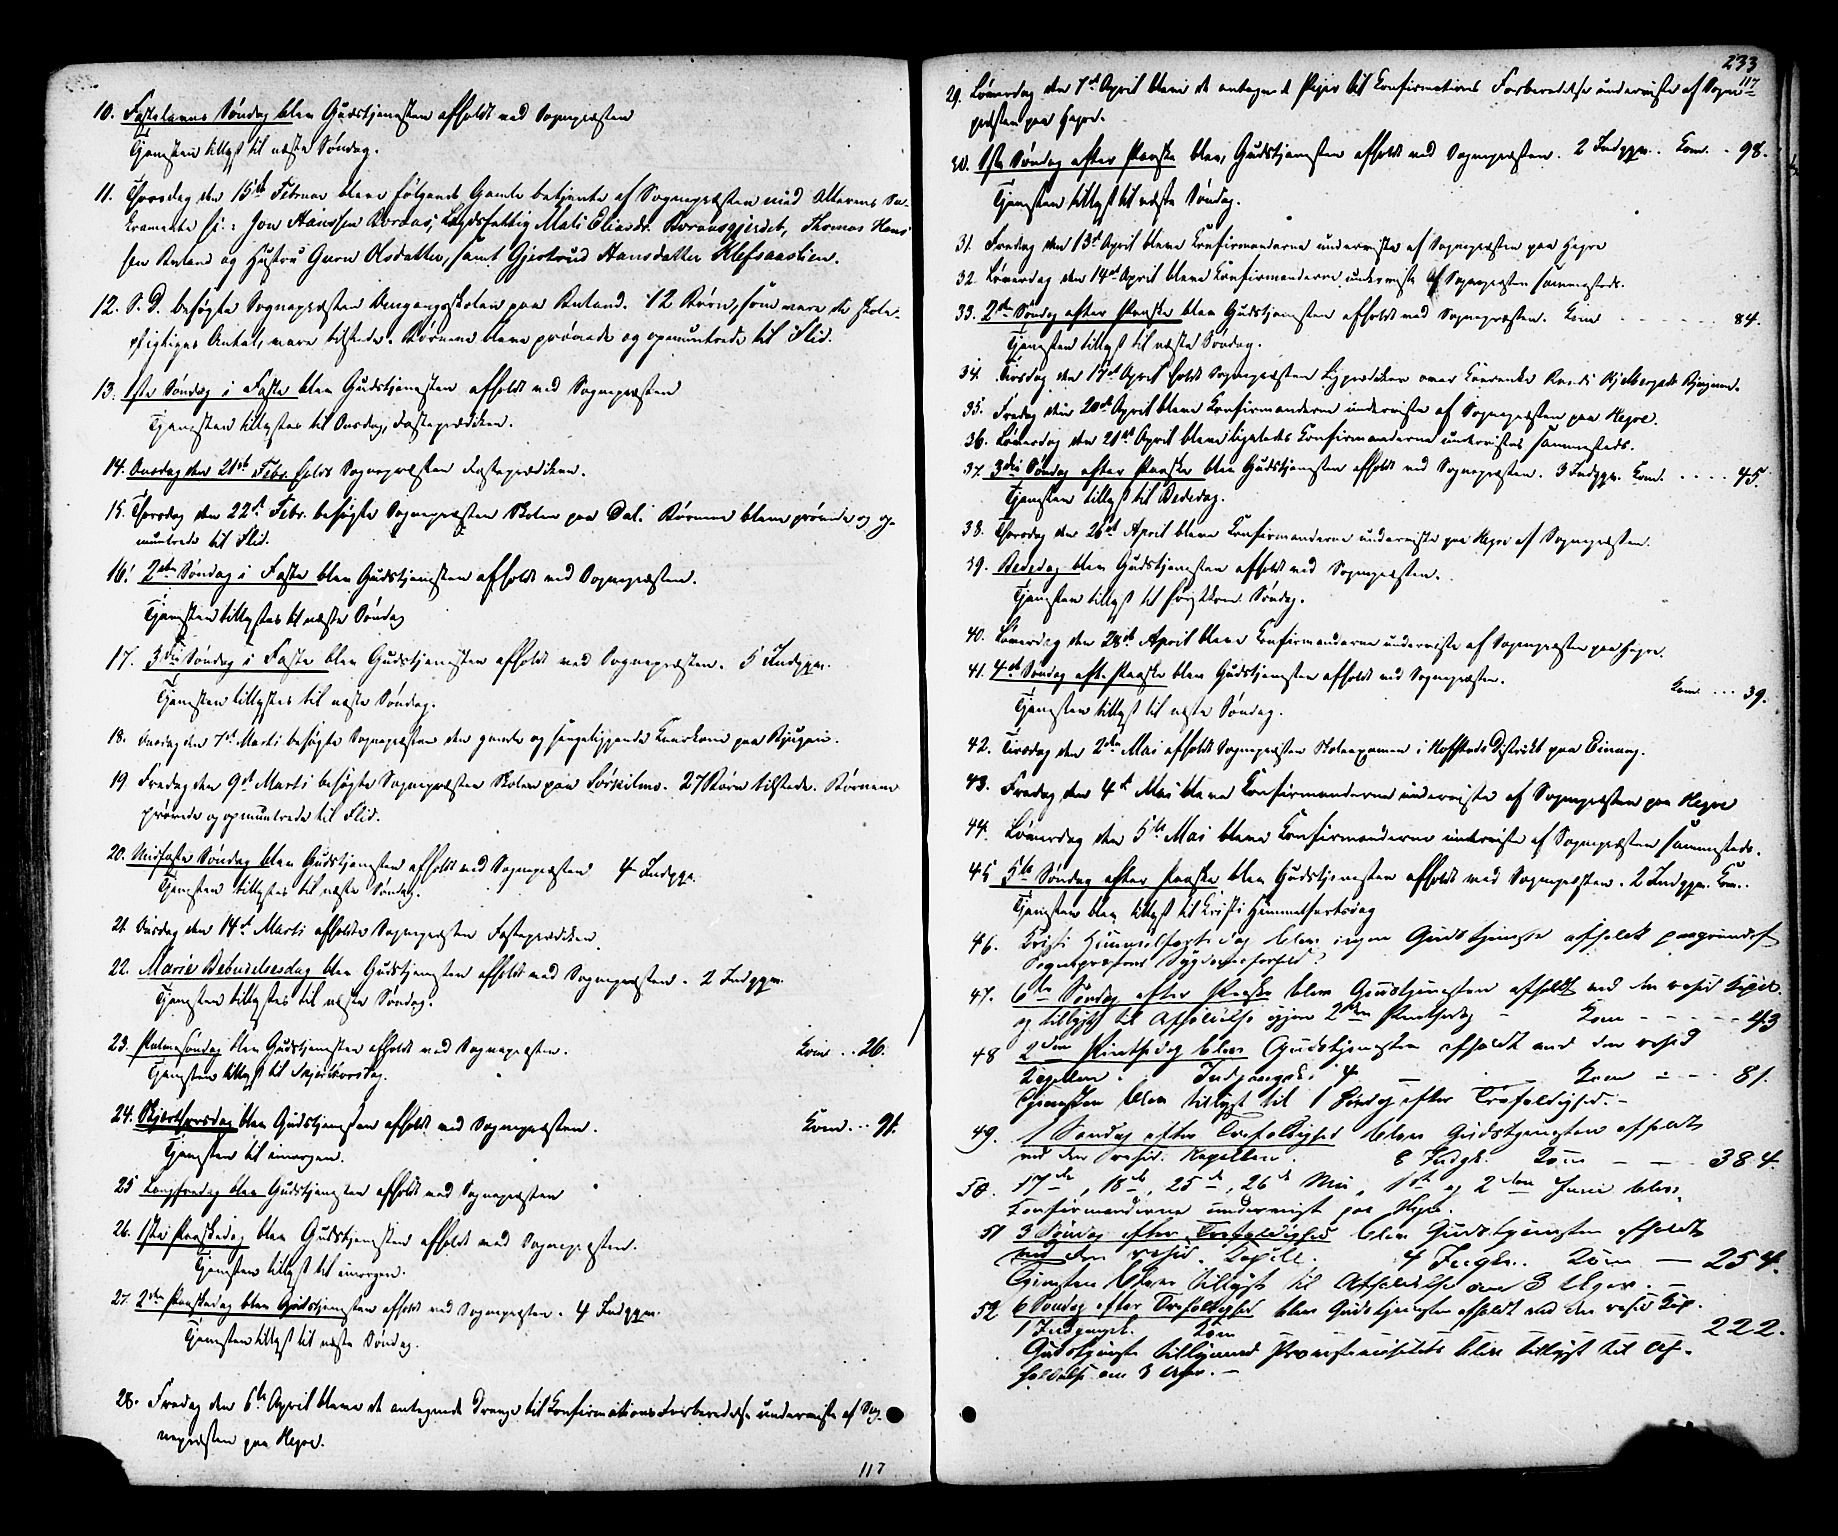 10. Fastelavns Søndag blev Gudstjenesten afholdt ved Sognepræsten
Tjenesten tillyst til næste Søndag.
11. Thorsdag den 15de Februar bleve følgende Gamle betjente af Sognepræsten med Alterens Sa-
kramente : Jon Hanssen, Mali Eliasdt. Thomas Hans
sen og Hustru Guru Olsdatter, samt Gjertrud Hansdatter
12. S. D. besøgte Sognepræsten Omgangsskolen paa 12 Børn, som vare de skole-
pligtiges Antal, vare tilstede. Børnene bleve prøvede og opmuntrede til Flid.
13. 1ste Søndag i Faste blev Gudstjenesten afholdt ved Sognepræsten
Tjenesten tillystes til Onsdag, Fasteprædiken.
14. Onsdag den 21de Febr. holdt Sognepræsten Fasteprædiken.
15. Thorsdag den 22de Febr. besøgte Sognepræsten Skolen paa Dal. Børnene bleve prøvede og op-
muntrede til Flid.
16. 2den Søndag i Faste blev Gudstjenesten afholdt ved Sognepræsten.
Tjenesten tillystes til næste Søndag
17. 3die Søndag i Faste blev Gudstjenesten afholdt ved Sognepræsten. 5 Indgger.
Tjenesten tillystes til næste Søndag.
18. Onsdag den 7de Marts besøgte Sognepræsten den gamle og sengeliggende paa
19. Fredag den 9de Marts besøgte Sognepræsten Skolen paa 27 Børn tilstede. Børnene
prøvede og opmuntrede til Flid.
20. Midfaste Søndag blev Gudstjenesten afholdt ved Sognepræsten 4 Indgger.
Tjenesten tillystes til næste Søndag.
21. Onsdag den 14de Marts afholdt Sognepræsten Fasteprædiken.
22. Mariæ Bebudelsesdag blev Gudstjenesten afholdt ved Sognepræsten. 2 Indgger.
Tjenesten tillystes til næste Søndag.
23. Palmesøndag blev Gudstjenesten afholdt ved Sognepræsten. Kom. .. 26.
Tjenesten tillyst til Skjærthorsdag.
24. Skjærthorsdag blev Gudstjenesten afholdt ved Sognepræsten. Kom. ... 91.
Tjenesten til imorgen.
25 Langfredag blev Gudstjenesten afholdt ved Sognepræsten
26. 1ste Paaskedag blev Gudstjenesten afholdt ved Sognepræsten.
Tjenesten tillyst til imorgen.
27. 2den Paaskedag blev Gudstjenesten afholdt ved Sognepræsten. 4 Indgger.
Tjenesten tillyst til næste Søndag.
28. Fredag den 6te April bleve de antagende Drenge til Konfirmations Forberedelse underviste af Sog-
nepræsten paa Hegre.
117
233
117
29. Løverdag den 7de April bleve de antagende Piger til Konfirmations Forberedelse underviste af Sogne-
præsten paa Hegre.
30. 1ste Søndag efter Paaske blev Gudstjenesten afholdt ved Sognepræsten. 2 Indgger. Kom. . 98.
Tjenesten tillyst til næste Søndag.
31. Fredag den 13de April bleve Konfirmanderne underviste af Sognepræsten paa Hegre
32. Løverdag den 14de April bleve Konfirmanderne underviste af Sognepræsten sammesteds.
33. 2den Søndag efter Paaske blev Gudstjenesten afholdt ved Sognepræsten. Kom . . . . . . 84.
Tjenesten tillyst til næste Søndag.
34. Tirsdag den 17de April holdt Sognepræsten Ligprædiken over
35. Fredag den 20de April bleve Konfirmanderne underviste af Sognepræsten paa Hegre.
36. Løverdag den 21de April bleve ligeledes Konfirmanderne underviste sammesteds.
37. 3die Søndag efter Paaske blev Gudstjenesten afholdt ved Sognepræsten. 3 Indgger. Kom. . . . . 45.
Tjenesten tillyst til Bededag.
38. Thorsdag den 26de April bleve Konfirmanderne underviste paa Hegre af Sognepræsten.
39. Bededag blev Gudstjenesten afholdt ved Sognepræsten.
Tjenesten tillyst til Søndag.
40. Løverdag den 28de April bleve Konfirmanderne underviste af Sognepræsten paa Hegre.
41. 4de Søndag eft. Paaske blev Gudstjenesten afholdt ved Sognepræsten. Kom ... 39.
Tjenesten tillyst til næste Søndag.
42. Tirsdag den 2den Mai afholdt Sognepræsten Skoleexamen i Distrikt paa Einang.
43. Fredag den 4de Mai bleve Konfirmanderne underviste af Sognepræsten paa Hegre
44. Løverdag den 5te Mai bleve Konfirmanderne underviste af Sognepræsten sammesteds.
45 5te Søndag efter Paaske blev Gudstjenesten afholdt ved Sognepræsten. 2 Indgger. Kom.
Tjenesten blev tillyst til Kristi Himmelfartsdag
46. Kristi Himmelfartsdag blev ingen Gudstjeneste afholdt paagrund af
Sognepræstens Sygdomsforfald.
47. 6te Søndag efter Paaske blev Gudstjenesten afholdt ved den resid Kapel.
og tillyst til Afholdelse igjen 2den Pintsedag - Kom - - - - - 43
48 2den Pintsedag blev Gudstjenesten afholdt ved den resid
Kapellan. Indgangsk: 4 — - Kom - - - 81.
Tjenesten blev tillyst til 1 Søndag efter Trefoldighed. -
49. 1 Søndag efter Trefoldighed blev Gudstjenesten afholdt
ved den resid. Kapellan. 8 Indgk. Kom - - - 384.
50. 17de, 18de, 25de, 26de Mai, 1ste og 2den Juni bleve
Konfirmanderne undervist paa Hegre.
51 3 Søndag efter Trefoldighed blev Gudstjenesten afholdt
ved den resid. Kapell. 4 Indgk. Kom — 254.
Tjenesten blev tillyst til Afholdelse om 3 Uger. -
52 6 Søndag efter Trefoldighed blev Gudstjenesten afholdt ved den resid Kap.
1 Indgangsk. Kom 222.
Gudstjeneste tilligemed Provstevisitats blev tillyst til Af-
holdelse om 3 Uger. -